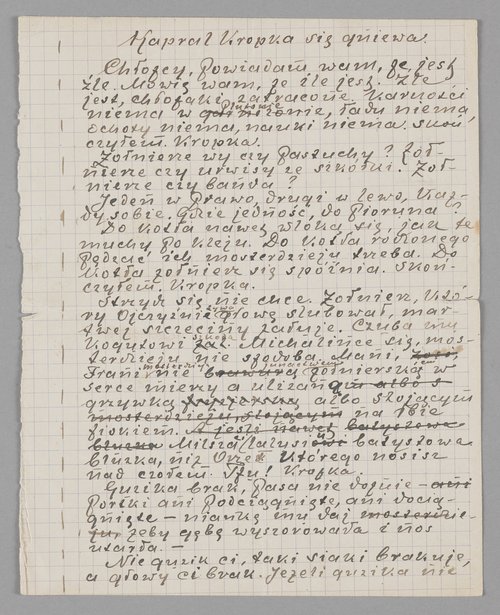 Kapral Kropka się gniewa.
Chłopcy, powiadam wam, że jest
źle. Mówię wam, że źle jest. Źle
jest, chłopaki zatracone. Karności
niema w plutonie, ładu niema,
ochoty niema, nauki niema. Skoń
czyłem. Kropka.
Żołnierze wy czy pastuchy? Żoł-
nierze czy urwisy ze szkółki. Żoł-
nierze czy banda?
Jeden w prawo, drugi w lewo, każ-
dy sobie. Gdzie jedność, do pioruna?
Do kotła nawet wloką się, jak te
muchy po kleju. Do kotła rodzonego
pędzać ich mosterdzieju trzeba. Do
kotła żołnierz się spóźnia. Skoń-
czyłem. Kropka.
Strzyc się nie chce. Żołnierz, któ-
ry Ojczyźnie głowę ślubował, mar-
twej szczeciny żałuje. Czuba mu
koguciej szkoda Michalince się, mos-
terdzieju nie spodoba. Mani,
Frani nie junactwem żołnierska w
serce mierzy a ulizaną albo s
grzywką albo stojącym
mosterdzieju, stojącym na łbie
fiskiem. A jeśli nawet batystowa
bluzka Milsza/lalusiowi batystowa
bluzka, niż Orzeł którego nosisz
nad czołem. Tfu! Kropka.
Guzika brak, pasa nie dopnie – ani
portki ani podciągnięte, ani dociąg-
gnięte – niańkę mu daj mosterdzie-
ju, żeby gębę wyszorowała i nos
utarła. –
Nie guzik ci, taki siaki brakuje,
a głowy ci brak. Jeżeli guzika nie